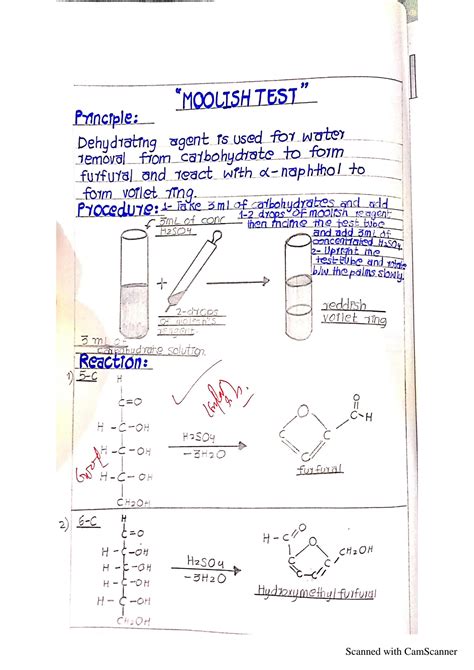 "MOOLISH TEST"
Principle:
Dehydrating agent is used for water
removal from carbohydrate to form
furfural and react with α-naphthol to
form voilet ring.
Procedure: 1- Take 3ml of carbohydrates and add
1-2 drops of moolish reagent
then incline the test tube
and add 3ml of
concentrated H2SO4
2- Upright the
test tube and rotate
b/w the palms slowly.
3mL of conc
H2SO4
+
2-drops
of molish's
reagent
reddish
voilet ring
3 ml
carbohydrate solution
Reaction:
1) 5-C
H
C=O
H-C-OH
H-C-OH
H-C-OH
CH2OH
H2SO4
-3H2O
O
O
C-H
C
C
C
furfural
Good
2) 6-C
H
C=O
H-C-OH
H-C-OH
H-C-OH
H-C-OH
CH2OH
H2SO4
-3H2O
H-C=O
O
CH2OH
C
C
C
C
Hydroxymethyl furfural
Scanned with CamScanner